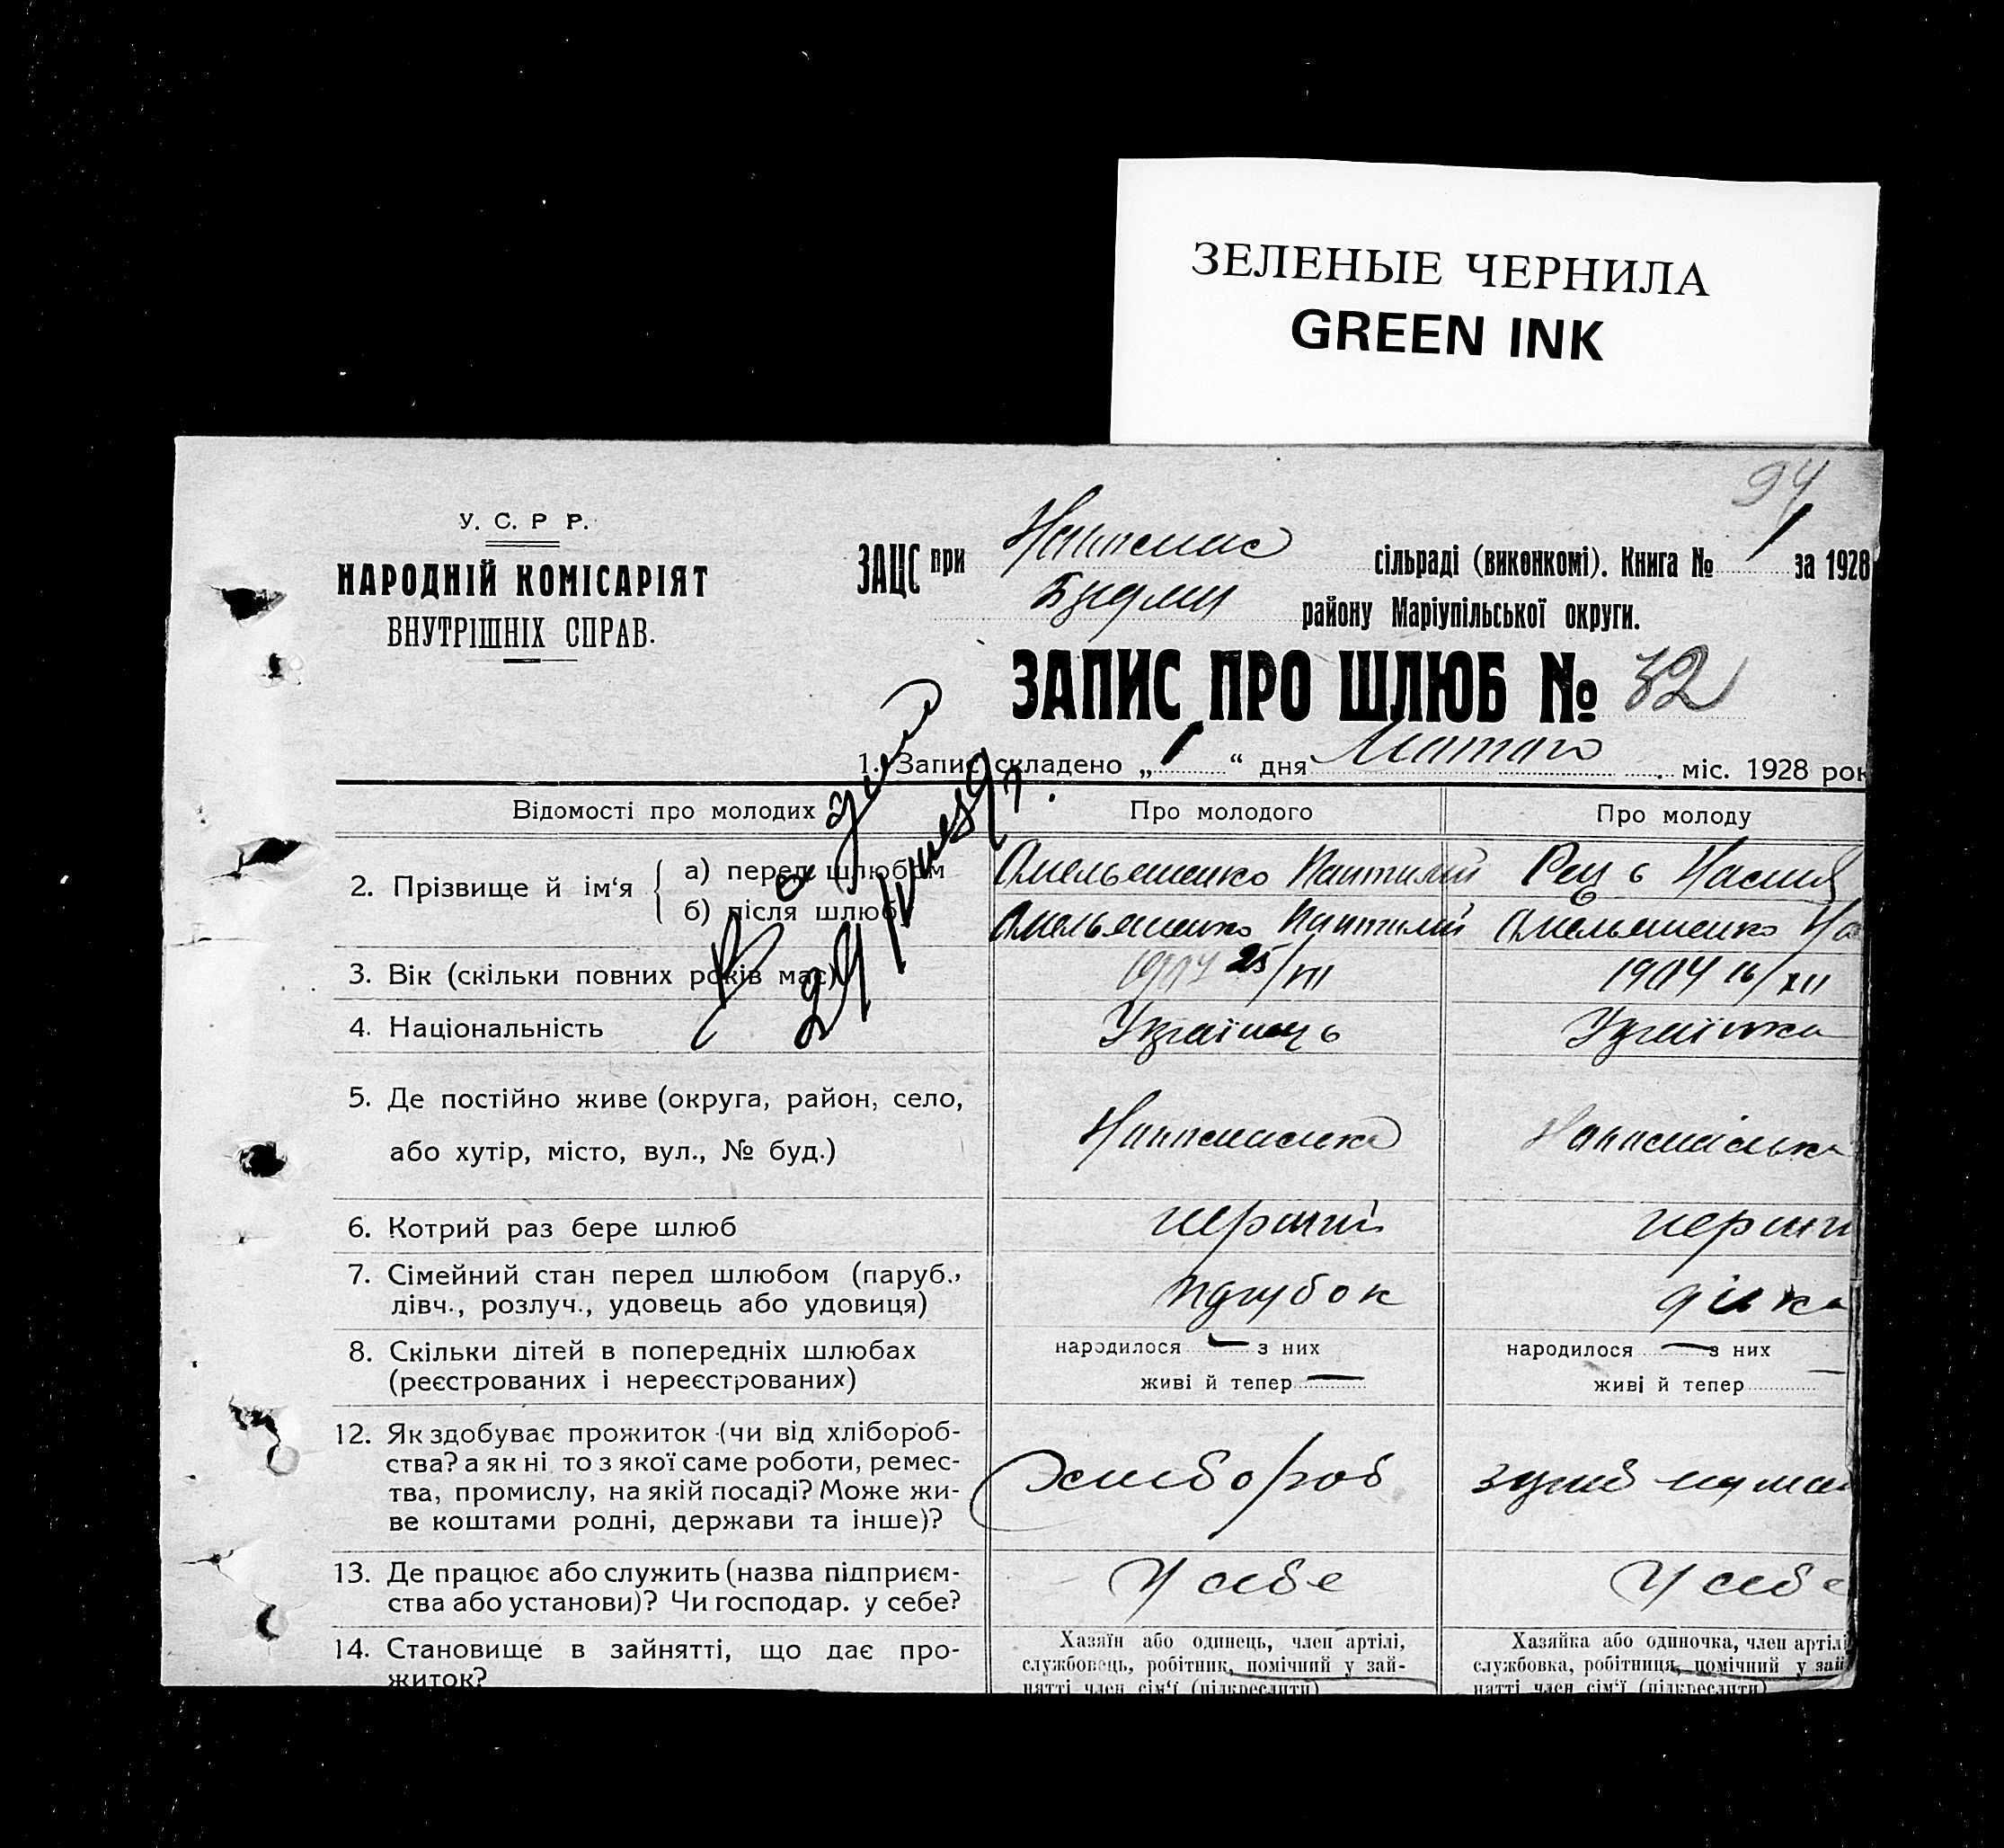 ЗЕЛЕНЫЕ ЧЕРНИЛА
GREEN INK
94
У. С. Р Р.
НАРОДНІЙ КОМІСАРІЯТ
ВНУТРІШНІХ СПРАВ.
ЗАЦС при сільраді (виконкомі). Книга № 1 за 1928
району Маріупільської округи.
ЗАПИС ПРО ШЛЮБ № 32
1. Запис складено „1“ дня Лютого міс. 1928 рок
Відомості про молодих
Про молодого
Про молоду
2. Прізвище й ім‘я
а) перед шлюбом
Омельяненко Пантилий
б) після шлюб
Омельяненко Пантилий
Омельяненко На
3. Вік (скільки повних років має)
25/VII
1904 16/XII
4. Національність
Українець
Українка
5. Де постійно живе (округа, район, село,
або хутір, місто, вул., № буд.)
6. Котрий раз бере шлюб
перший
перши
7. Сімейний стан перед шлюбом (паруб.,
дівч., розлуч., удовець або удовиця)
парубок
дівка
8. Скільки дітей в попередніх шлюбах
(реєстрованих і нереєстрованих)
народилося — з них
живі й тепер —
народилося — з них
живі й тепер —
12. Як здобуває прожиток (чи від хлібороб-
ства? а як ні то з якої саме роботи, ремес-
тва, промислу, на якій посаді? Може жи-
ве коштами родні, держави та інше)?
Хлибороб
13. Де працює або служить (назва підприєм-
ства або установи)? Чи господар. у себе?
У себе
У себе
14. Становище в зайнятті, що дає про-
житок?
Хазяїн або одинець, член артілі,
службовець, робітник, помічний у зай-
нятті член сім‘ї (підкреслити)
Хазяйка або одиночка, член артілі
службовка, робітниця, помічний у зай
нятті член сім‘ї (підкреслити)